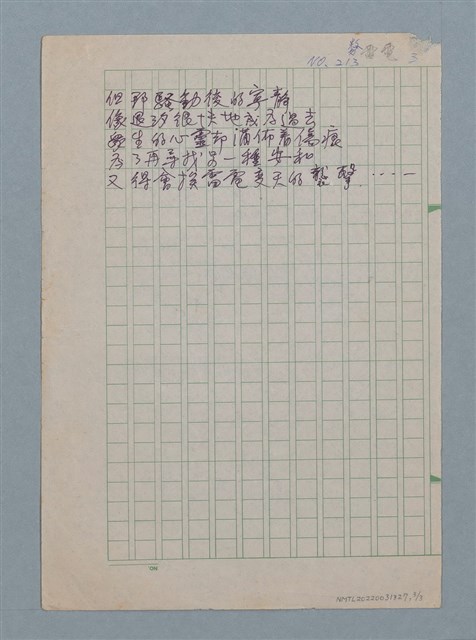 NO. 213
3
但那騷動後的寧靜
像退汐很快地成為過去
眾生的心靈却滿佈着傷痕
為了再尋找另一種安和
又得會挨雷電變天的襲擊……
NMTL20220031327, 3/3